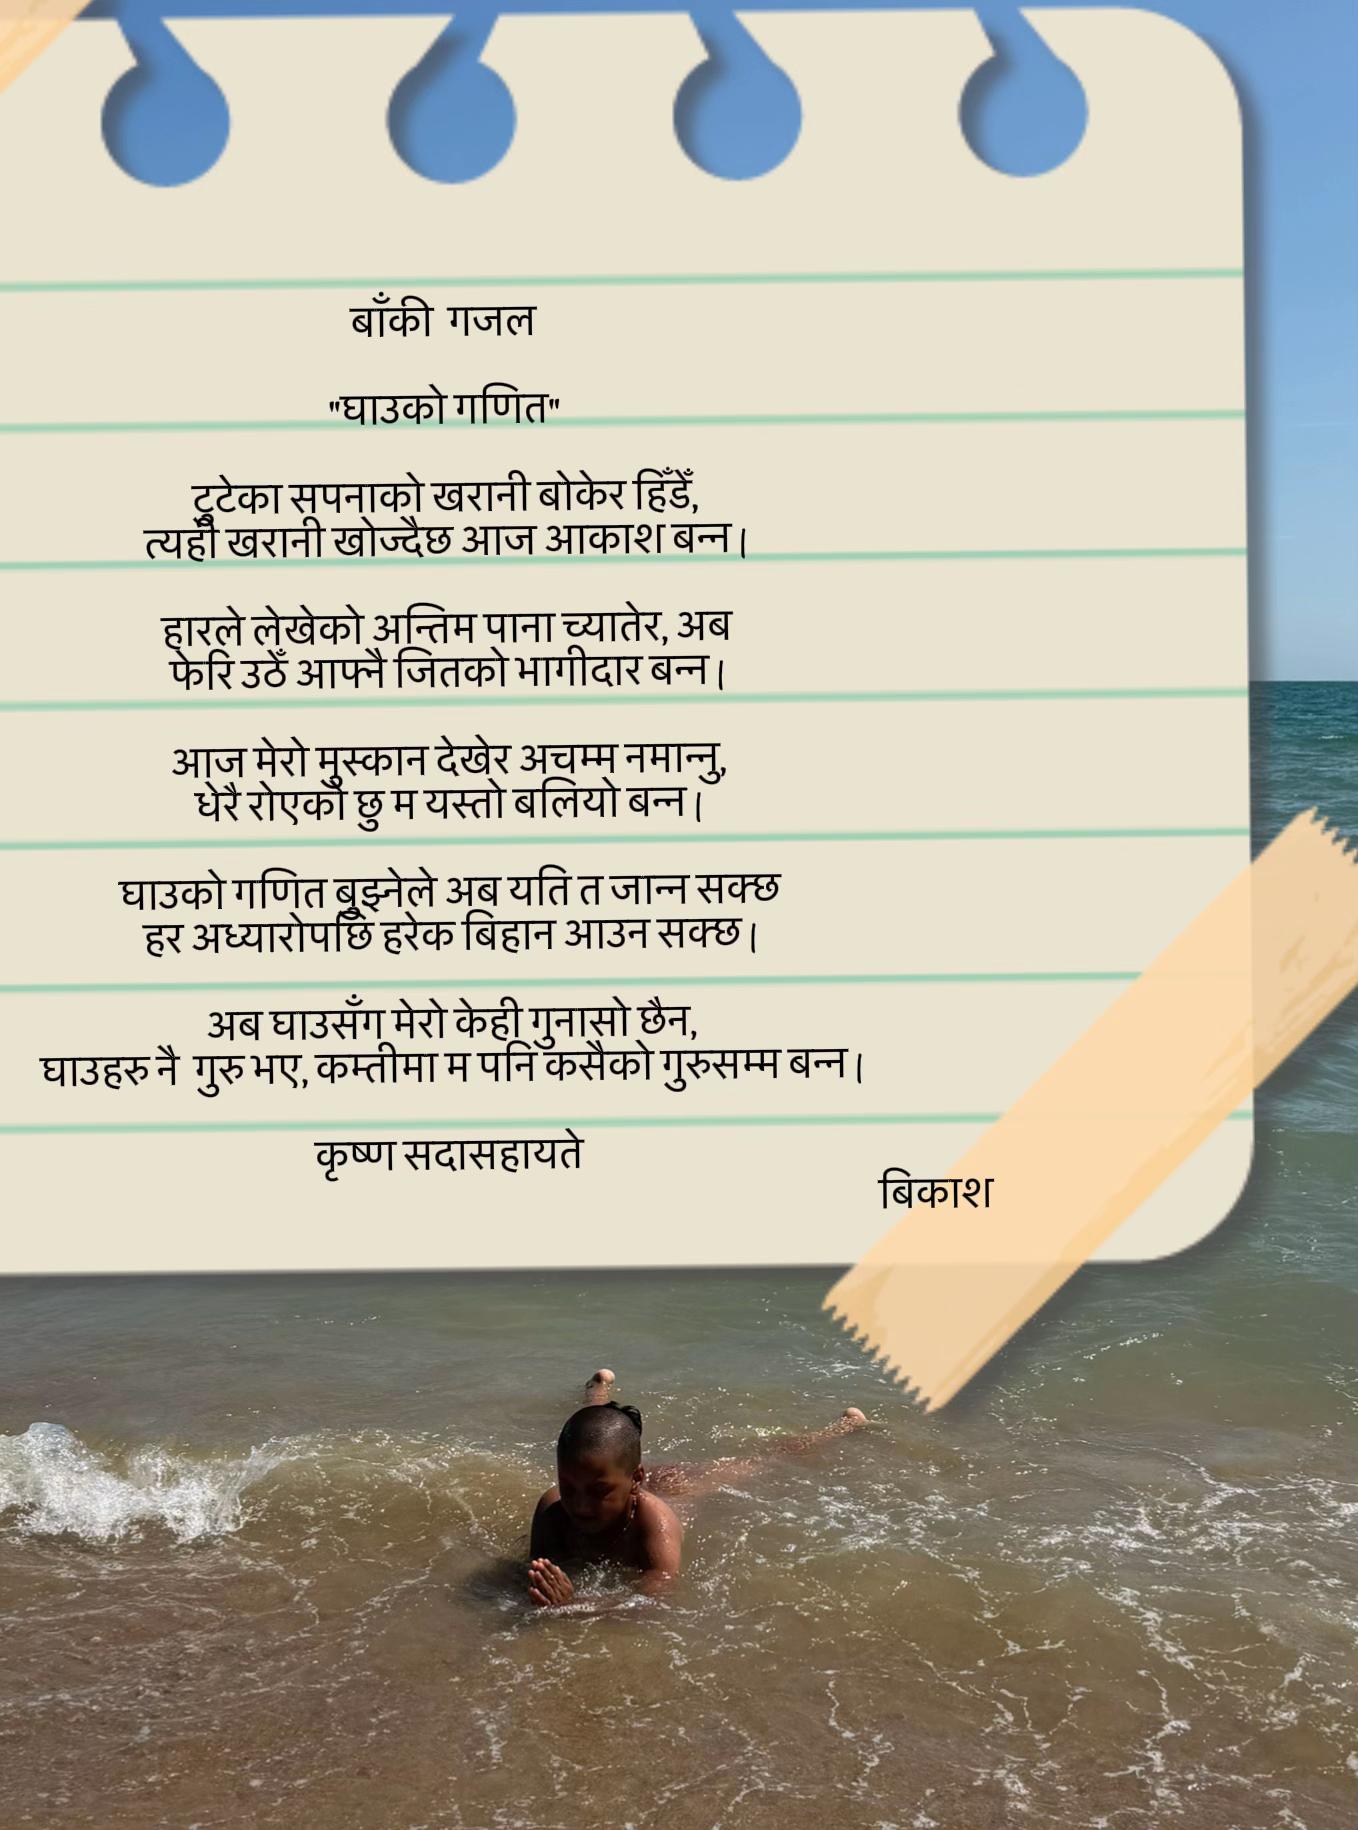 बाँकी गजल
"घाउको गणित"
टुटेका सपनाको खरानी बोकेर हिँडेँ,
त्यही खरानी खोज्दैछ आज आकाश बन्न।
हारले लेखेको अन्तिम पाना च्यातेर, अब
फेरि उठेँ आफ्नै जितको भागीदार बन्न।
आज मेरो मुस्कान देखेर अचम्म नमान्नु,
धेरै रोएको छु म यस्तो बलियो बन्न।
घाउको गणित बुझ्नेले अब यति त जान्न सक्छ
हर अध्यारोपछि हरेक बिहान आउन सक्छ।
अब घाउसँग मेरो केही गुनासो छैन,
घाउहरु नै गुरु भए, कम्तीमा म पनि कसैको गुरुसम्म बन्न।
कृष्ण सदासहायते
बिकाश